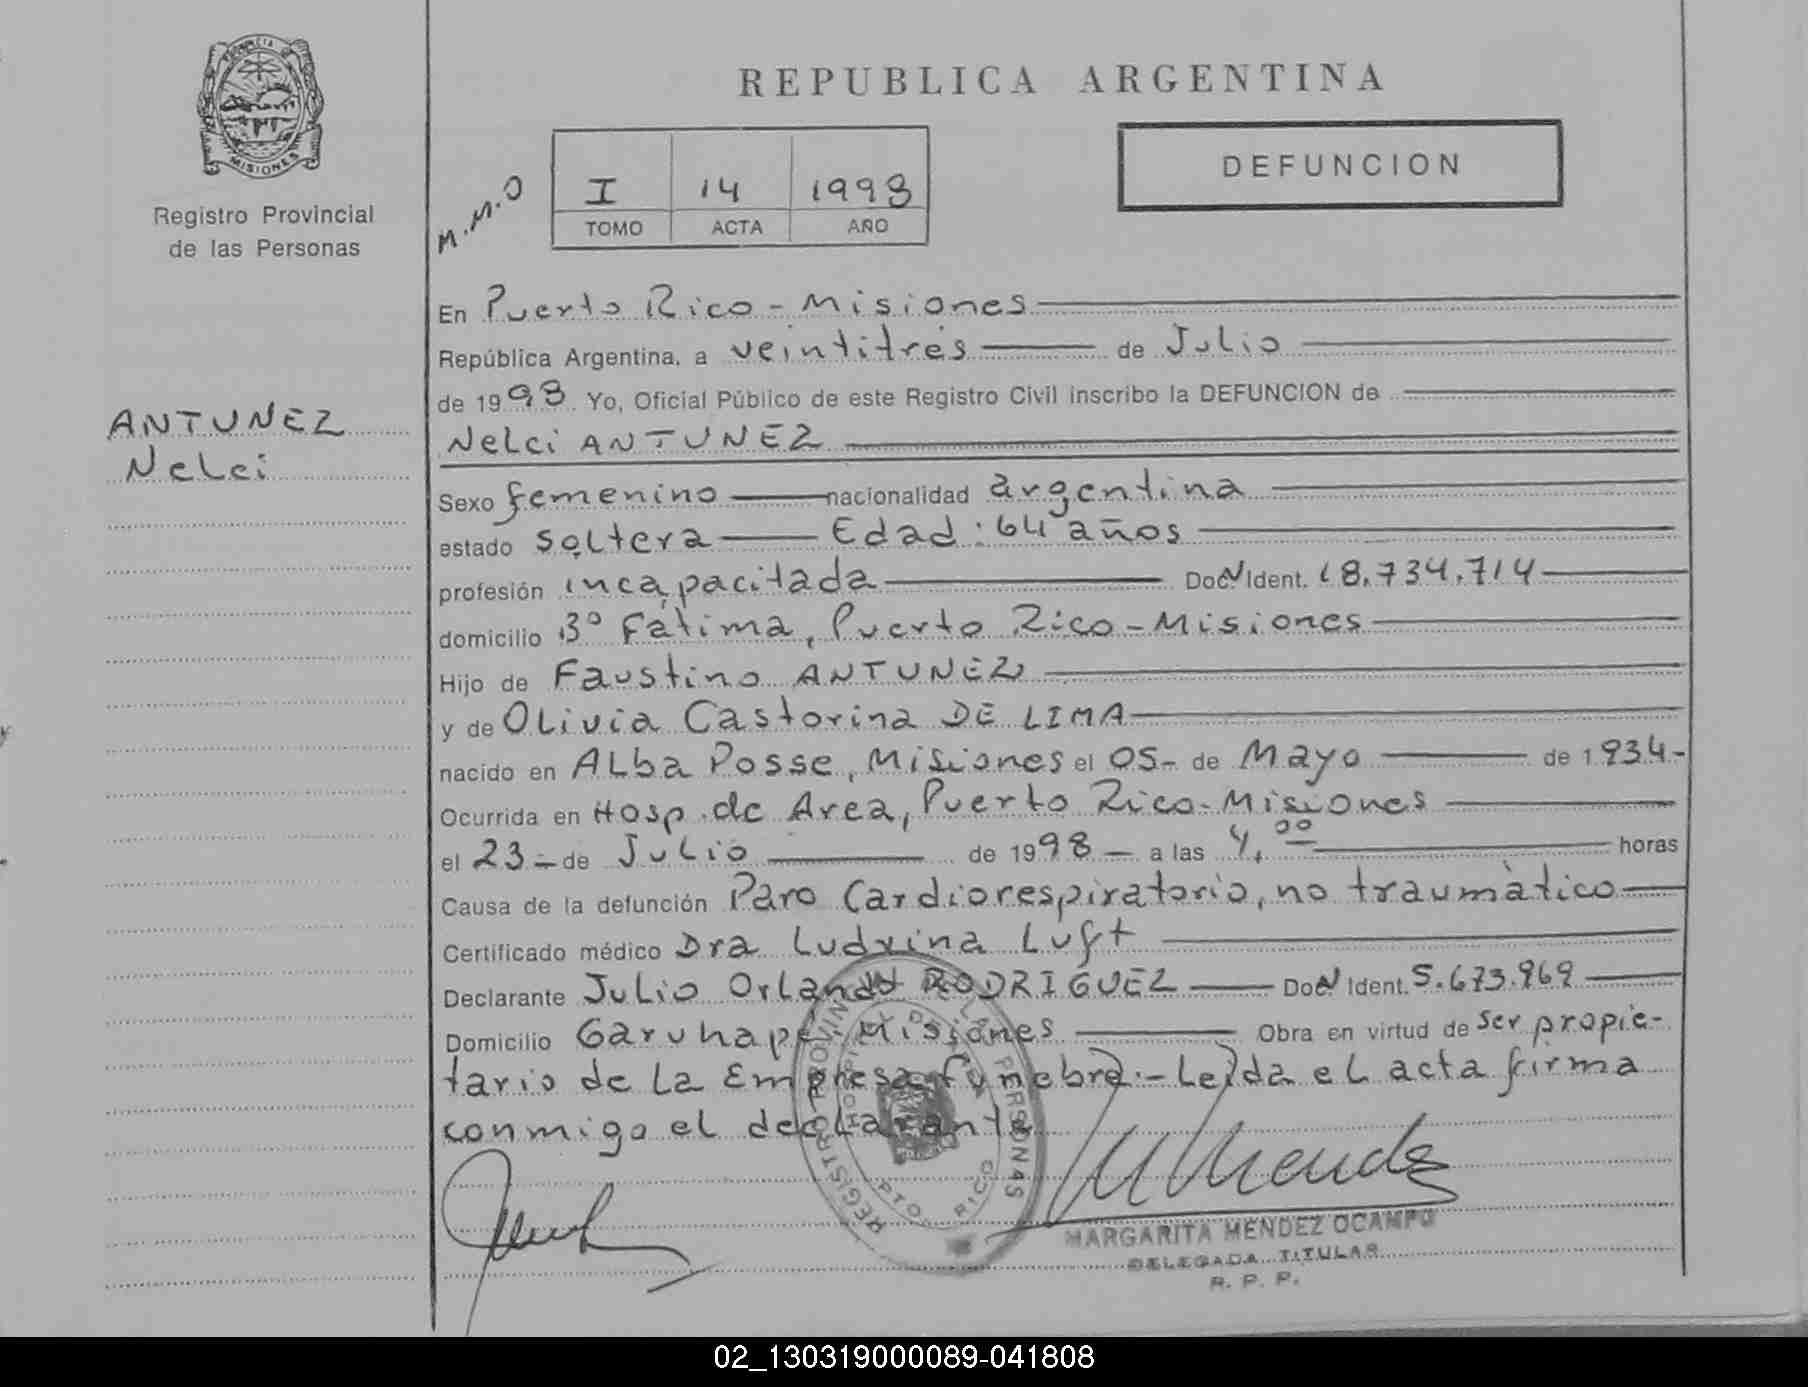 PROVINCIA DE
MISIONES
Registro Provincial
de las Personas
ANTUNEZ
Nelci
REPUBLICA ARGENTINA
M.M.O
I 14 1998
TOMO ACTA AÑO
DEFUNCION
En Puerto Rico - Misiones
República Argentina, a veintitrés de Julio
de 1998 Yo, Oficial Público de este Registro Civil inscribo la DEFUNCION de
Nelci ANTUNEZ
Sexo femenino nacionalidad argentina
estado soltera Edad: 64 años
profesión incapacitada Doc. N Ident. 18.734.714
domicilio Bº Fátima, Puerto Rico - Misiones
Hijo de Faustino ANTUNEZ
y de Olivia Castorina DE LIMA
nacido en Alba Posse, Misiones el 05- de Mayo de 1934-
Ocurrida en Hosp. de Area, Puerto Rico - Misiones
el 23 - de Julio de 1998 - a las 4,00 horas
Causa de la defunción Paro Cardiorespiratorio, no traumàtico
Certificado médico Dra Ludvina Luft
Declarante Julio Orlando RODRIGUEZ Doc. N Ident. 5.673.969
Domicilio Garuhapé Misiones Obra en virtud de ser propie-
tario de la Empresa fúnebre.- Leída el acta firma
conmigo el declarante
REGISTRO PROVINCIAL DE LAS PERSONAS
PTO. RICO
MARGARITA MENDEZ OCAMPO
DELEGADA TITULAR
R. P. P.
02_130319000089-041808